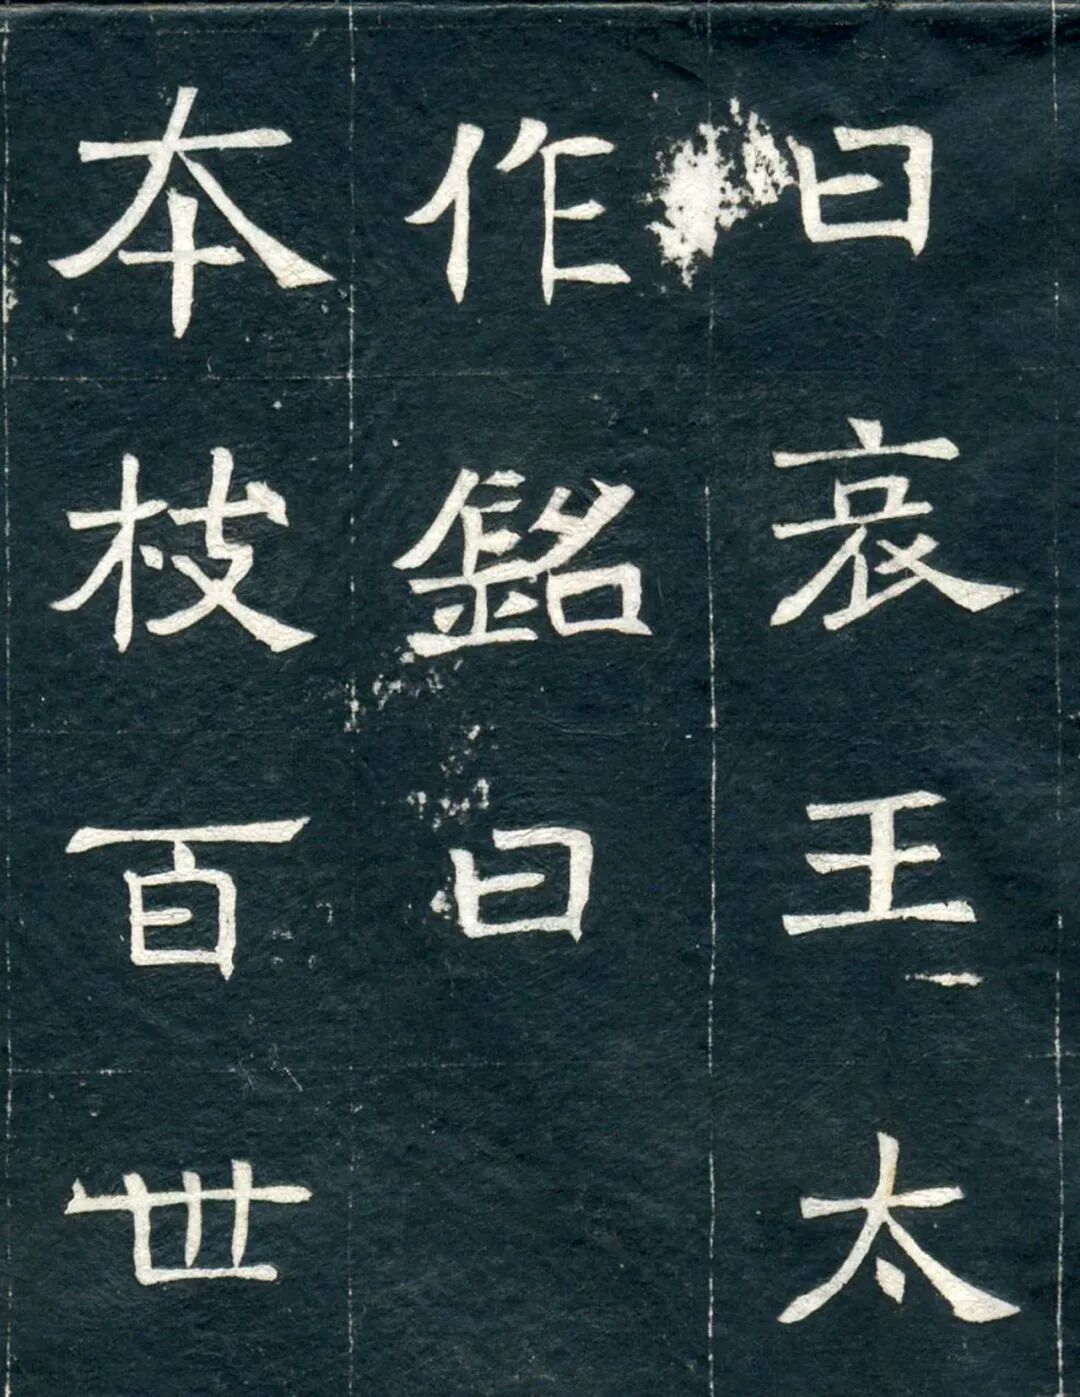 曰哀王太
作銘曰
本枝百世